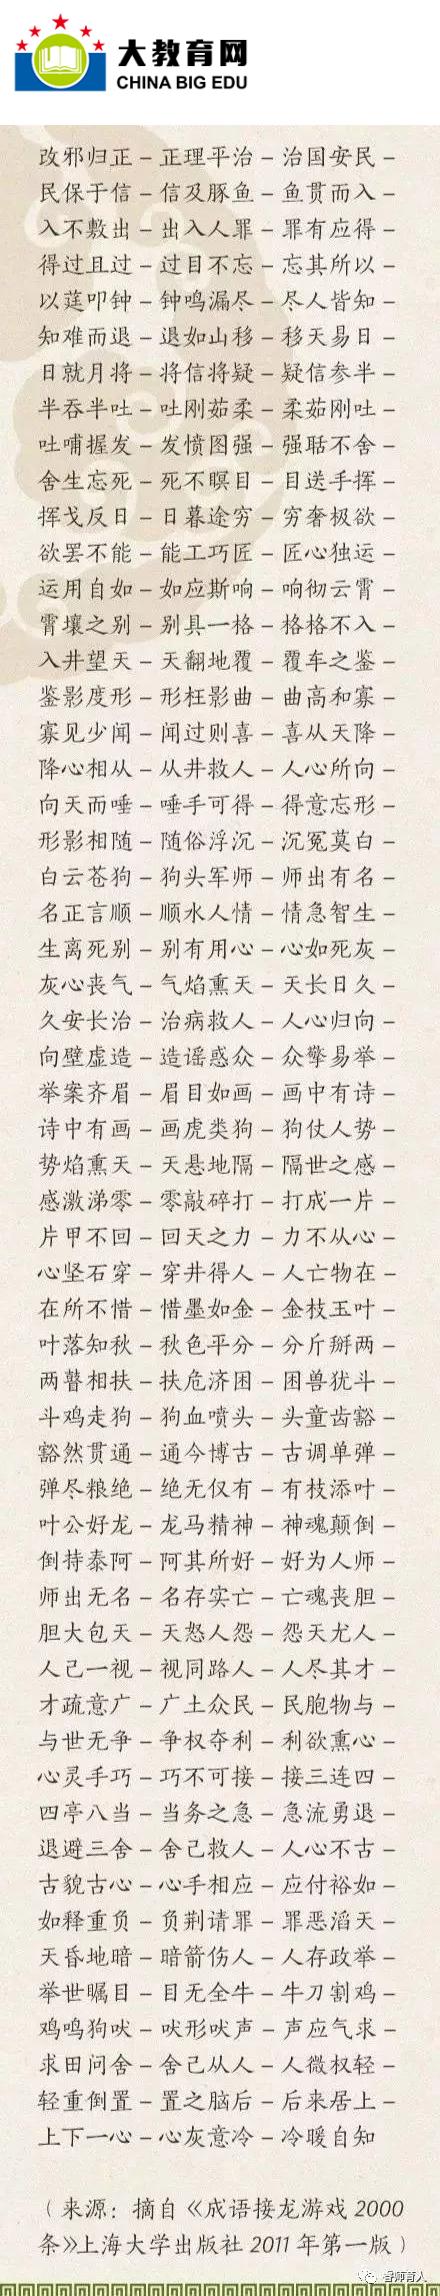 大教育网
CHINA BIG EDU
改邪归正–正理平治–治国安民–
民保于信–信及豚鱼–鱼贯而入–
入不敷出–出入人罪–罪有应得–
得过且过–过目不忘–忘其所以–
以莛叩钟–钟鸣漏尽–尽人皆知–
知难而退–退如山移–移天易日–
日就月将–将信将疑–疑信参半–
半吞半吐–吐刚茹柔–柔茹刚吐–
吐哺握发–发愤图强–强聒不舍–
舍生忘死–死不瞑目–目送手挥–
挥戈反日–日暮途穷–穷奢极欲–
欲罢不能–能工巧匠–匠心独运–
运用自如–如应斯响–响彻云霄–
霄壤之别–别具一格–格格不入–
入井望天–天翻地覆–覆车之鉴–
鉴影度形–形枉影曲–曲高和寡–
寡见少闻–闻过则喜–喜从天降–
降心相从–从井救人–人心所向–
向天而唾–唾手可得–得意忘形–
形影相随–随俗浮沉–沉冤莫白–
白云苍狗–狗头军师–师出有名–
名正言顺–顺水人情–情急智生–
生离死别–别有用心–心如死灰–
灰心丧气–气焰熏天–天长日久–
久安长治–治病救人–人心归向–
向壁虚造–造谣惑众–众擎易举–
举案齐眉–眉目如画–画中有诗–
诗中有画–画虎类狗–狗仗人势–
势焰熏天–天悬地隔–隔世之感–
感激涕零–零敲碎打–打成一片–
片甲不回–回天之力–力不从心–
心坚石穿–穿井得人–人亡物在–
在所不惜–惜墨如金–金枝玉叶–
叶落知秋–秋色平分–分斤掰两–
两瞽相扶–扶危济困–困兽犹斗–
斗鸡走狗–狗血喷头–头童齿豁–
豁然贯通–通今博古–古调单弹–
弹尽粮绝–绝无仅有–有枝添叶–
叶公好龙–龙马精神–神魂颠倒–
倒持泰阿–阿其所好–好为人师–
师出无名–名存实亡–亡魂丧胆–
胆大包天–天怒人怨–怨天尤人–
人己一视–视同路人–人尽其才–
才疏意广–广土众民–民胞物与–
与世无争–争权夺利–利欲熏心–
心灵手巧–巧不可接–接三连四–
四亭八当–当务之急–急流勇退–
退避三舍–舍己救人–人心不古–
古貌古心–心手相应–应付裕如–
如释重负–负荆请罪–罪恶滔天–
天昏地暗–暗箭伤人–人存政举–
举世瞩目–目无全牛–牛刀割鸡–
鸡鸣狗吠–吠形吠声–声应气求–
求田问舍–舍己从人–人微权轻–
轻重倒置–置之脑后–后来居上–
上下一心–心灰意冷–冷暖自知
（来源：摘自《成语接龙游戏2000
条》上海大学出版社2011年第一版）
香师育人